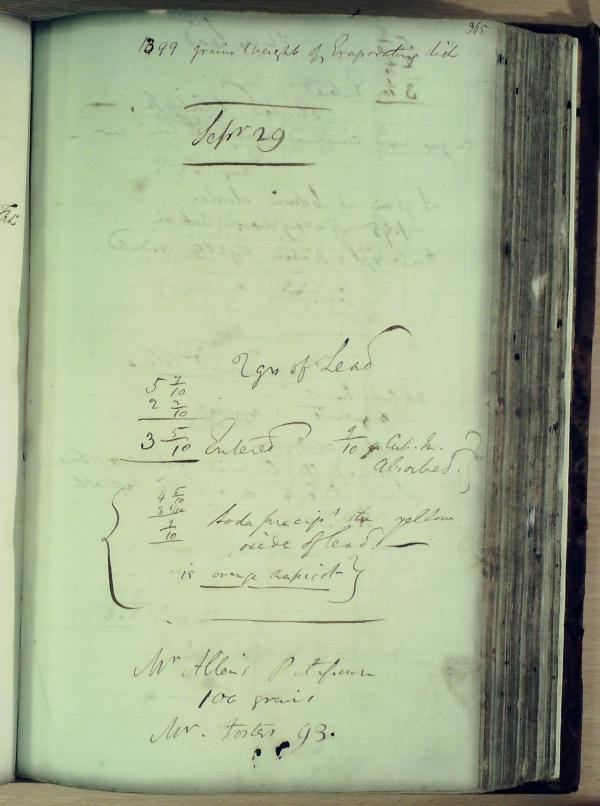 365
1399 grains weight of Evaporating dish
Sepr 29
2 grs of Lead
5 7/10
2 2/10
3 5/10 Entered 9/10 of Cub. In.
Absorbed.
4 5/10
3
9/10
Soda precipd the yellow
oxide of lead.
is orange
Mr Allens
100 grains
Mr. Fosters 93.